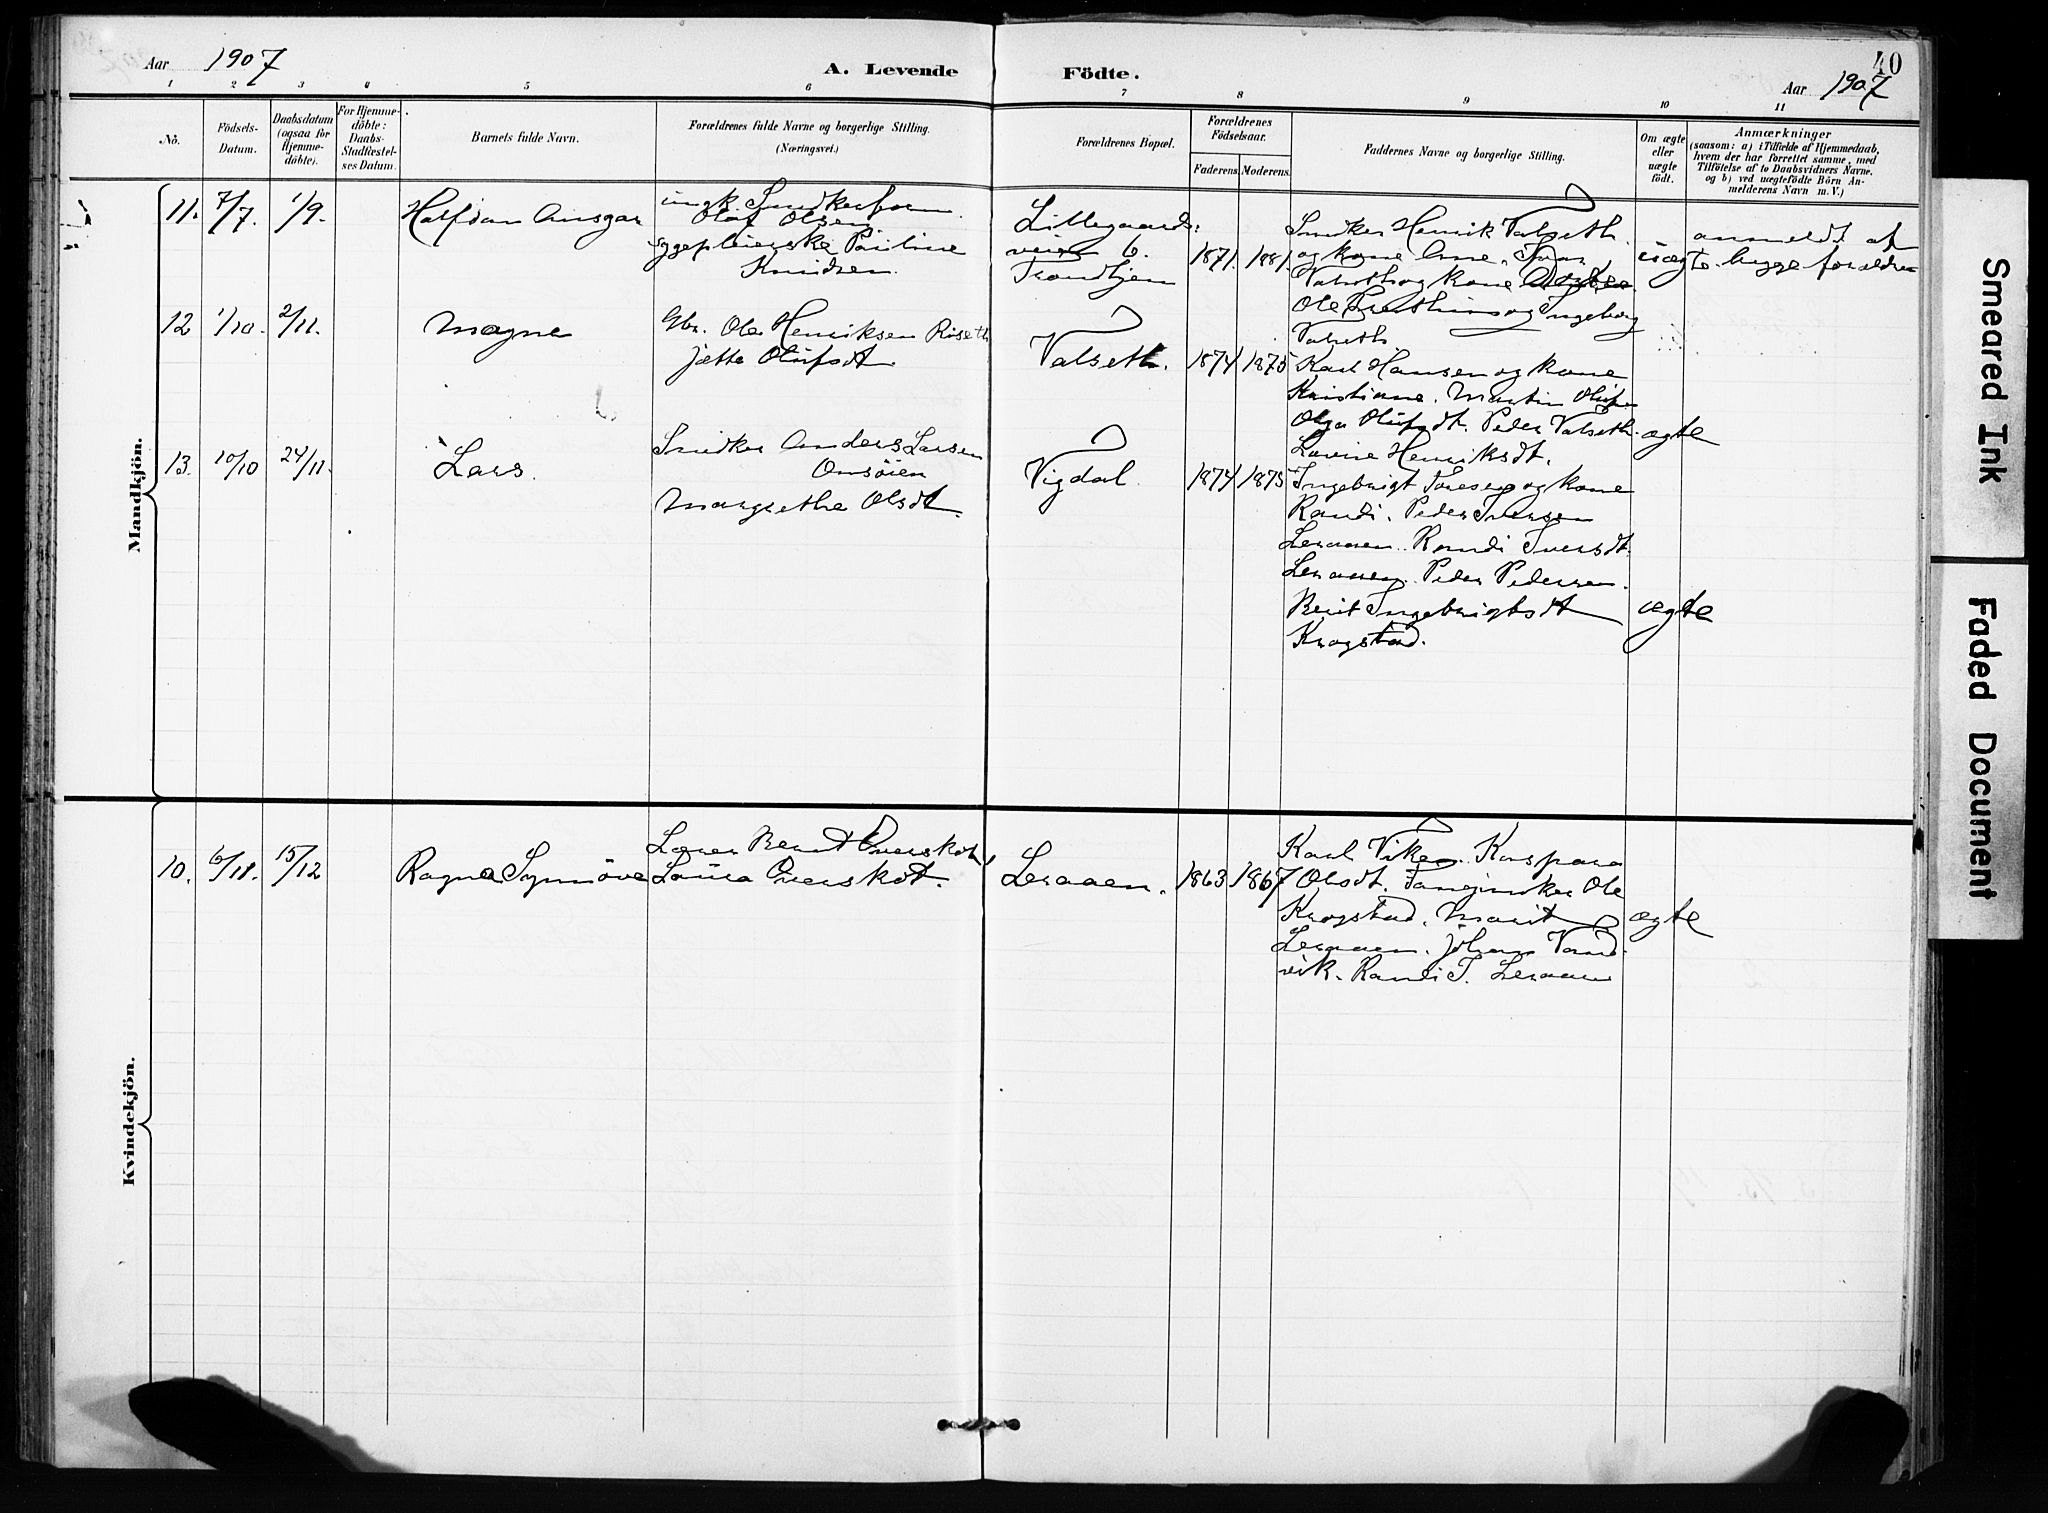 Aar 1907
A. Levende
Födte.
40
Aar 1907
1 2 3 4 5 6 7 8 9 10 11
No.
Födsels-
Datum.
Daabsdatum
(ogsaa for
Hjemme-
döbte).
For Hjemme-
döbte:
Daabs-
Stadfæstel-
ses Datum.
Barnets fulde Navn.
Forældrenes fulde Navne og borgerlige Stilling.
(Næringsvei.)
Forældrenes Bopæl.
Forældrenes
Födselsaar.
Faderens. Moderens.
Faddernes Navne og borgerlige Stilling.
Om ægte
eller
uægte
födt.
Anmærkninger
(saasom: a) i Tilfælde af Hjemmedaab,
hvem der har forrettet samme, med
Tilföielse af to Daabsvidners Navne.
og b) ved uægtefödte Börn An-
melderens Navn m. V.)
Mandkjön.
11. 7/7. 1/9. Halfdan Ansgar
ungk.
Olaf Olsen
Pauline
Knudsen.
Lillegaards-
veien 6.
Trondhjem
1871. 1881.
Snedker Henrik Valseth.
og kone Ane. Ivar
Valseth og kone
Ole og Ingeborg
Valseth
uægte.
anmeldt af
begge forældre
12 1/10. 2/11. Magne
Gbr. Ole Henriksen Riseth
Jette Olufsdt
Valseth. 1874 1875
Karl Hansen og kone
Kristiane. Martin
Olga Olufsdt. Peder Valseth.
Lovine Henriksdt.
ægte
13. 10/10 24/11. Lars.
Snedker Anders Larsen
Omsöien
Margrethe Olsdt.
Vigdal. 1874 1875
Ingebrigt Toresen og kone
Randi. Peder Iversen
Leraaen. Randi Iversdt.
Leraaen. Peder Pedersen.
Berit Ingebrigtsdt
Krogstad.
ægte
Kvindekjön.
10. 6/11. 15/12 Ragna Synnöve
Lærer Bernt
Laura
Leraaen. 1863 1867
Karl Viken. Kaspara
Olsdt. Ole
Krogstad. Marit
Leraaen. Johan Vand-
vik. Randi T. Leraaen
ægte
Smeared Ink
Faded Document